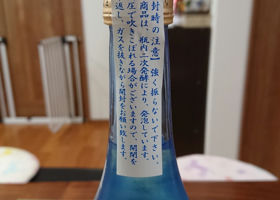 封時の注意】強く振らないで下さい。
商品は、瓶内二次発酵により、発泡しています。
圧で吹きこぼれる場合がございますので、開閉を
返し、ガスを抜きながら開封をお願い致します。